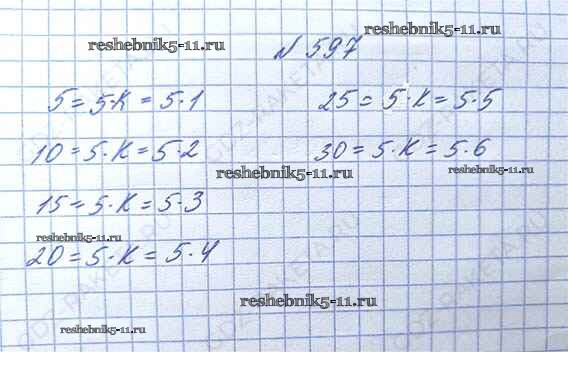 reshebnik5-11.ru
№ 597
reshebnik5-11.ru
5 = 5·К = 5·1
25 = 5·К = 5·5
10 = 5·К = 5·2
30 = 5·К = 5·6
reshebnik5-11.ru
reshebnik5-11.ru
15 = 5·К = 5·3
reshebnik5-11.ru
20 = 5·К = 5·4
reshebnik5-11.ru
reshebnik5-11.ru